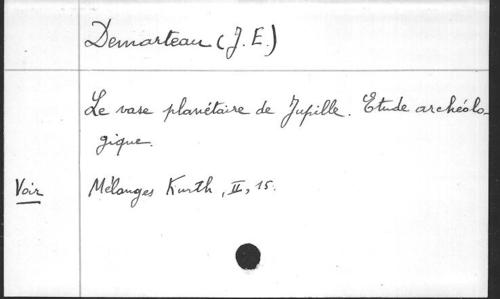 Demarteau (J. E.)
Le vase planétaire de Jupille. Etude archéolo-
gique.
Voir Mélanges Kurth, II, 15.